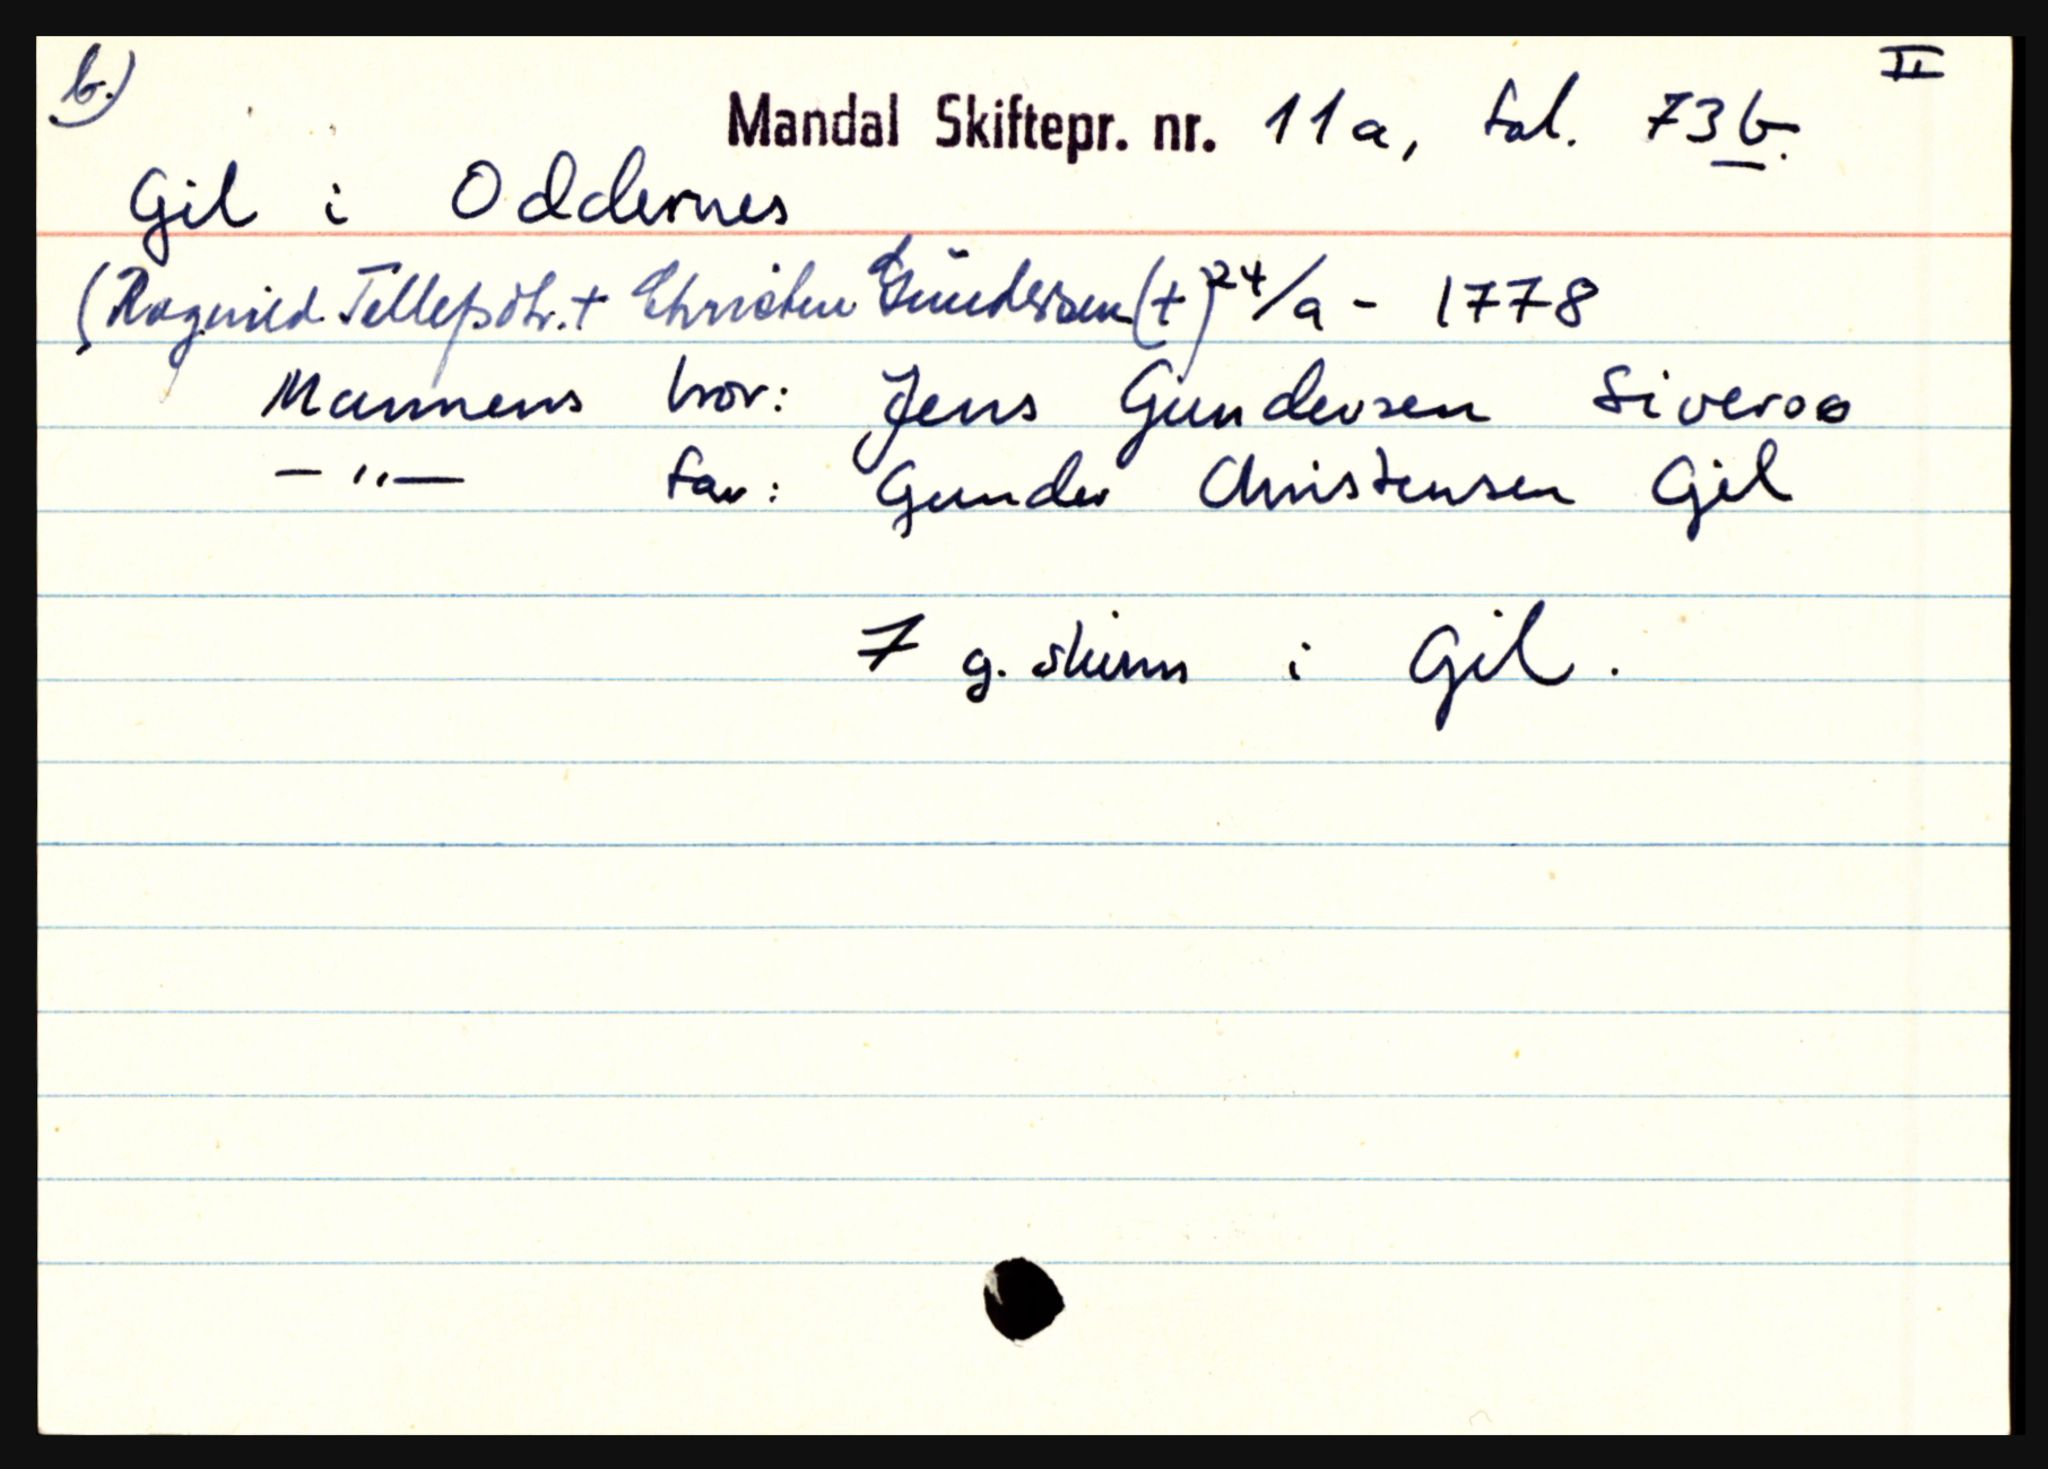 b.) II
Mandal Skiftepr. nr. 11a, fol. 73b.
Gil i Oddernes
(Ragnild Tellefsdtr. + Christen Gundersen (†) 24/a - 1778
Mannens bror: Jens Gundersen Siveroo
— " — far: Gunder Christensen Gil
7 g. skinn i Gil.